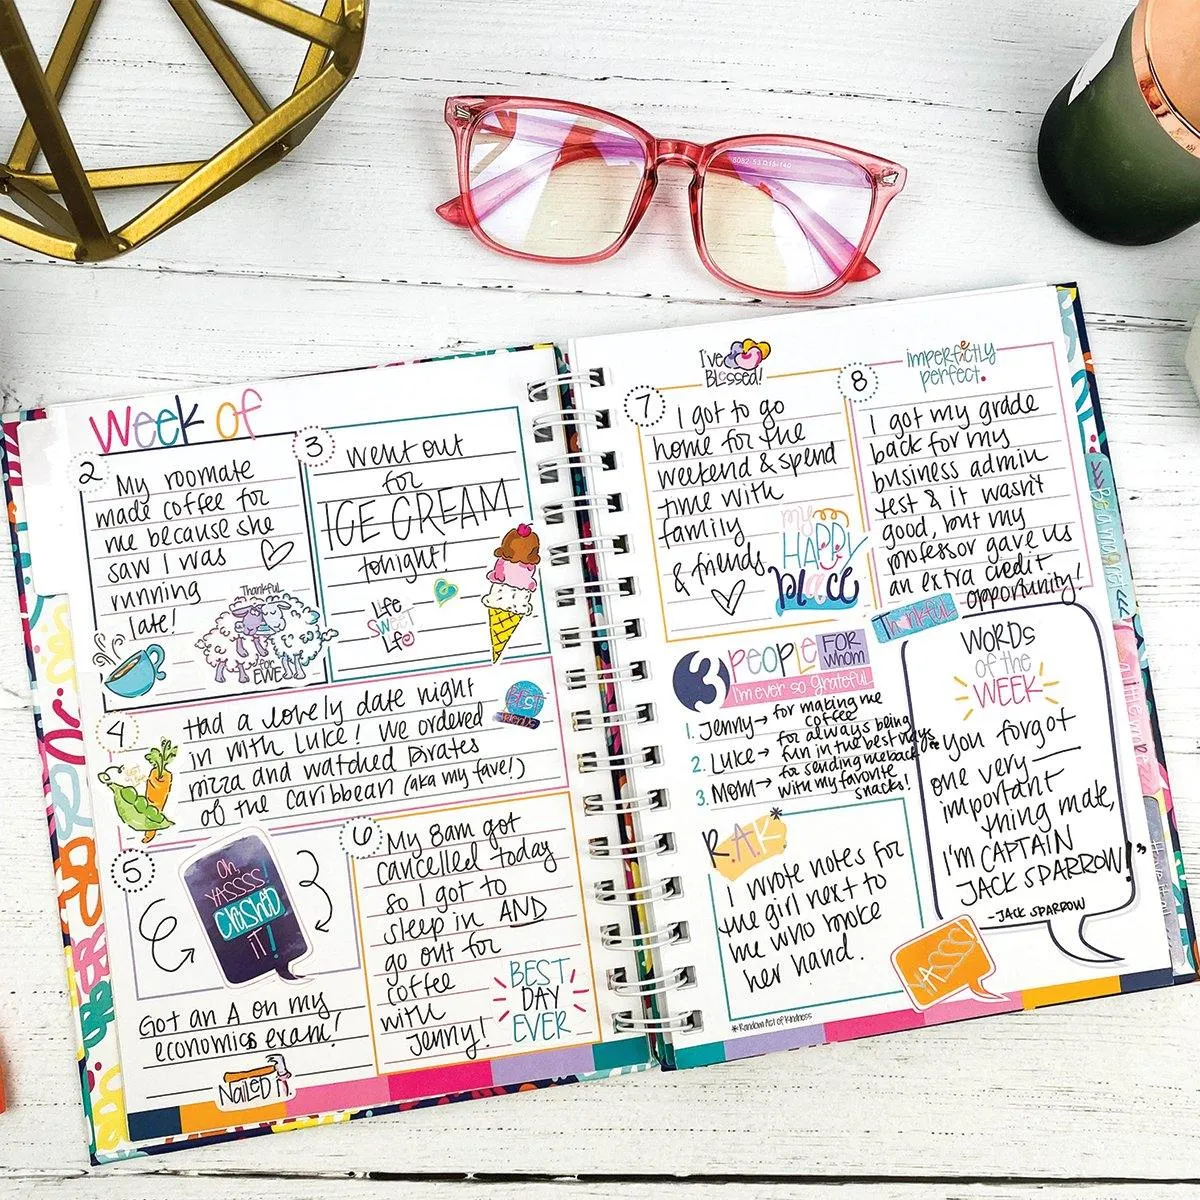 6082 53□15-140
Week of
2
My roomate
made coffee for
me because she
saw I was
running
late!
Thankful
for
EWE
3
Went out
for
ICE CREAM
tonight!
Life
Sweet
Life
4
Had a lovely date night
in with Luke! We ordered
pizza and watched Pirates
of the Caribbean (aka my fave!)
BEST
5
Oh,
YASSSS!
CRUSHED
IT!
Got an A on my
economics exam!
NAILED IT.
6
My 8am got
cancelled today
so I got to
sleep in AND
go out for
coffee
with
Jenny!
BEST
DAY
EVER
I've
BLessed!
7
I got to go
home for the
weekend & spend
time with
family
& friends
my
HAPPY
place
imperfectly
perfect.
8
I got my grade
back for my
business admin
test & it wasn't
good, but my
professor gave us
an extra credit
opportunity!
Thankful
3 PEOPLE FOR whom
I'm ever so grateful
1. Jenny → for making me
coffee
2. Luke → for always being
fun in the best ways
3. Mom → for sending me back
with my favorite
snacks!
R.A.K*
I wrote notes for
the girl next to
me who broke
her hand.
*Random Act of Kindness
WORDS
of the
WEEK
"you forgot
one very
important
thing mate,
I'm CAPTAIN
JACK SPARROW!"
-JACK SPARROW
YASSS!